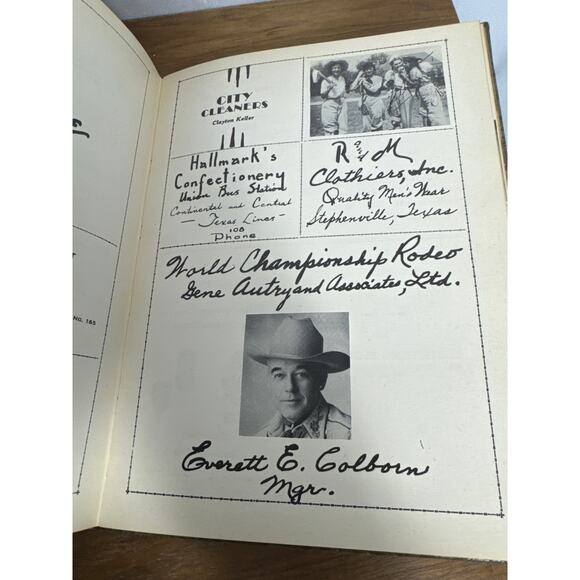 No. 165
CITY
CLEANERS
Clayton Keller
Hallmark's
Confectionery
Union Bus Station
Continental and Central
— Texas Lines —
108
Phone
R and M
Clothiers, Inc.
Quality Men's Wear
Stephenville, Texas
World Championship Rodeo
Gene Autry and Associates, Ltd.
Everett E. Colborn
Mgr.